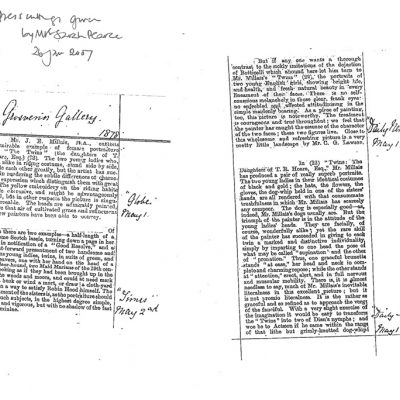 press cuttings given
by Mrs Sarah Pearce
26 Jan 2007
Grosvenor Gallery.
1878
Mr. J. E. Millais, R.A., exhibits
admirable example of female portraiture
"The Twins" (the daughters of T.
Hoare, Esq.) (23). The two young ladies who,
alike in riding costume, stand side by side,
each other greatly, but the artist has
in rendering the subtle differences of character
expression which distinguish them with great
The yellow embroidery on the riding habits
excessive, and might be advantageously
in other respects the picture is
The heads are admirably painted,
that air of cultivated grace and
few painters have been able to convey.
"Globe"
May 1.
there are two examples—a half-length of a
Scotch bonnie, turning down a page in her
notification of a "Good Resolve," and a
forward presentment of two handsome and
young ladies, twins, in suits of green, and
one with her hand on the head of
looking as if they had been brought up in the
woods and moors, and could at need mark
buck or wind a mort, or draw a cloth-yard
in a way to satisfy Robin Hood himself. The
of the sisters is, as the portraiture should
such subjects, in the highest degree simple,
and vigorous, but with no shadow of the fast
"Times"
May 2nd
But if any one wants a thorough
contrast to the sickly imitations of the dejection
of Botticelli which abound here let him turn to
Mr. Millais's "Twins" (23), the portraits of
two young English girls, showing bright life,
and health, and fresh natural beauty in every
lineament of their faces. There is no self-
conscious melancholy in these clear, frank eyes:
no enfeebled and affected attitudinising in the
simple maidenly bearing. As a piece of painting,
too, this picture is noteworthy. The treatment
is courageous and true throughout; we feel that
the painter has caught the essence of the character
of the two faces; these two figures live. Close to
this wholesome and refreshing picture is a very
pretty little landscape by Mr. C. G. Lawson.
May 1
In (23) "Twins: The
Daughters of T. R. Hoare, Esq," Mr. Millais
has produced a pair of really superb portraits.
The two young ladies in their identical costumes
of black and gold; the hats, the flowers, the
gloves, the dog-whip held in one of the sisters'
hands are all rendered with that consummate
truthfulness in which Mr. Millais has scarcely
any compeer. The dog is especially good—as,
indeed, Mr. Millais's dogs usually are. But the
triumph of the painter is in the attitude of the
young ladies' heads. They are facially, of
course, wonderfully alike; yet the sure skill
of the painter has succeeded in giving to each
twin a marked and distinctive individuality,
simply by imparting to one head the pose of
what may be called "supination" and the other
of "pronation." Thus, one graceful brunette
stands "at ease," her head and neck in com-
plete and charming repose; while the other stands
at "attention," erect, alert, and in full nervous
and muscular mobility. There is, it is almost
needless to say, much of Mr. Millais's inevitable
literalness in this excellent picture; but it
is not prosaic literalness. It is the rather so
graceful and so refined as to approach the verge
of the fanciful. With a very slight exercise of
the imagination it would be easy to transform
the "Twins" into two of Dian's nymphs; and
woe be to Actæon if he came within the range
of that lithe but grimly-knotted dog-whip!
Daily
May 1